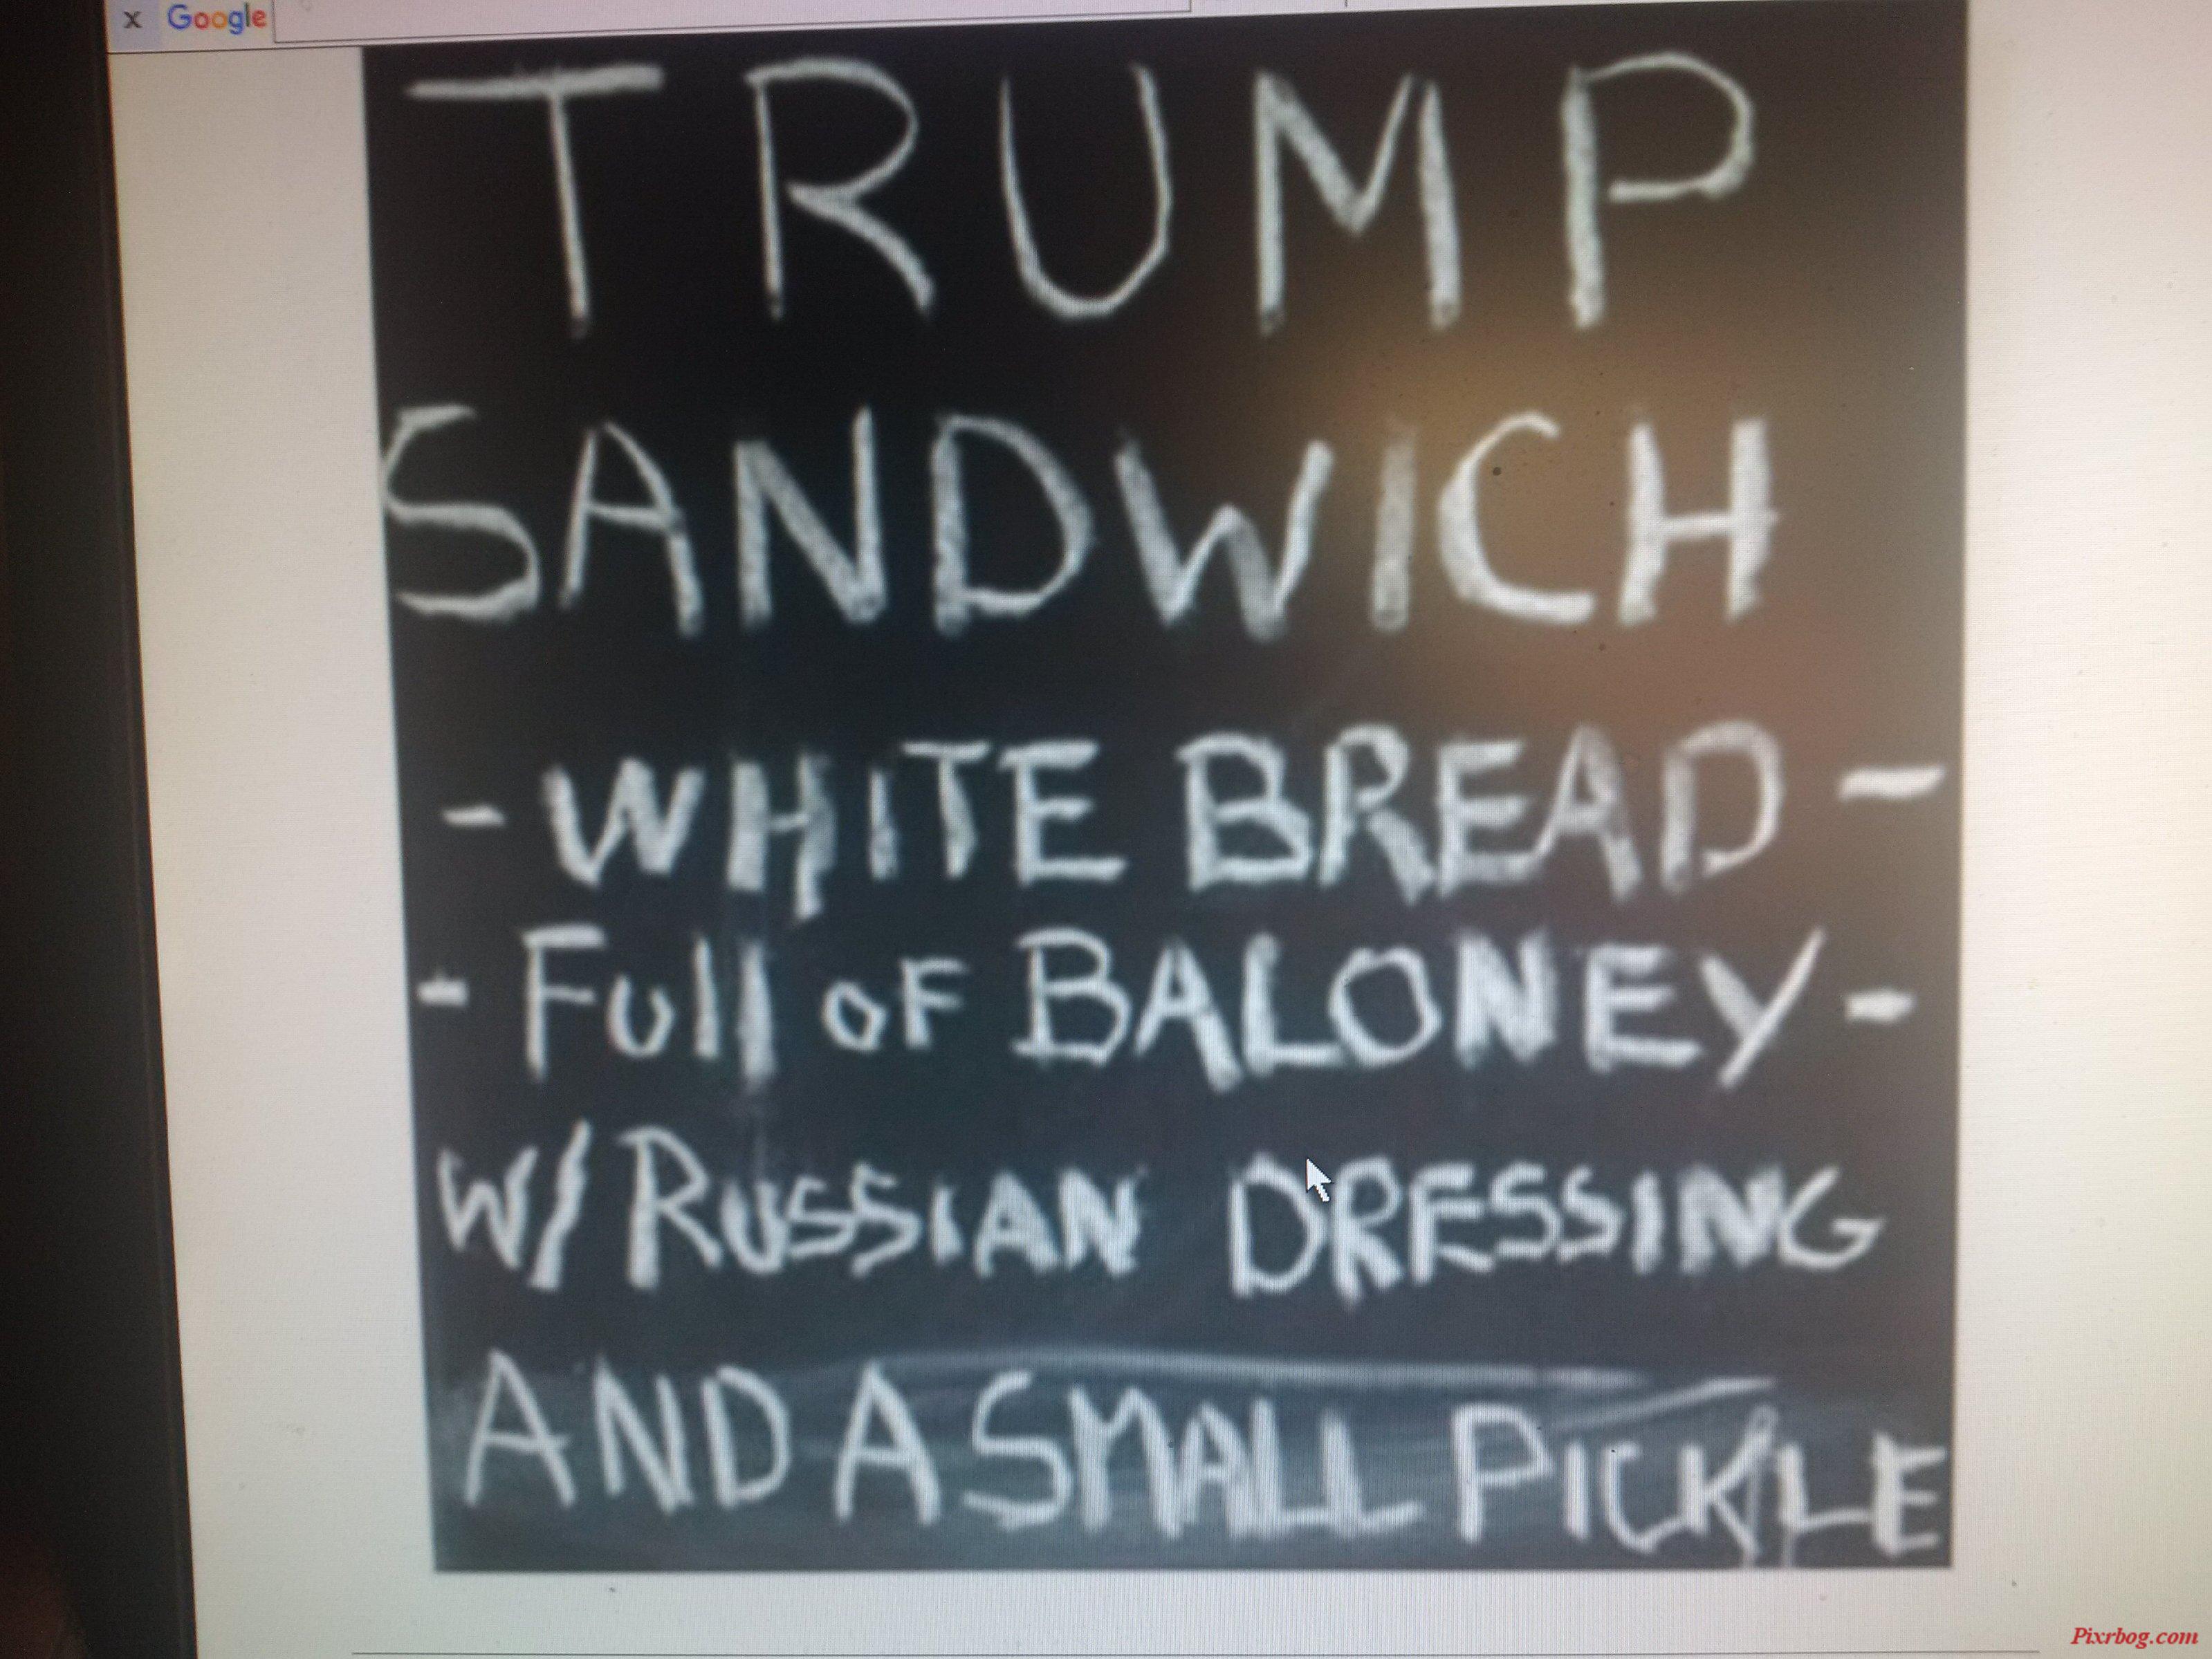 x Google
TRUMP
SANDWICH
- WHITE BREAD -
- Full oF BALONEY -
W/ RUSSIAN DRESSING
AND A SMALL PICKLE
Pixrbog.com